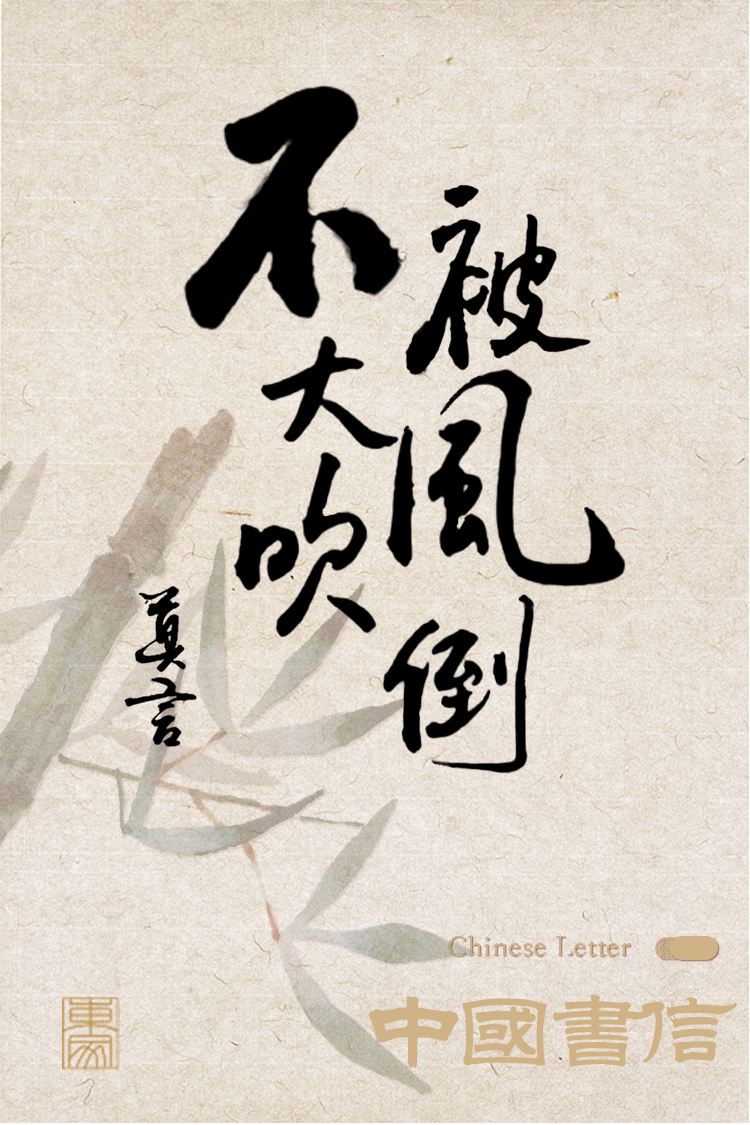 不被
大風
吹倒
莫言
Chinese Letter
中國書信
東家